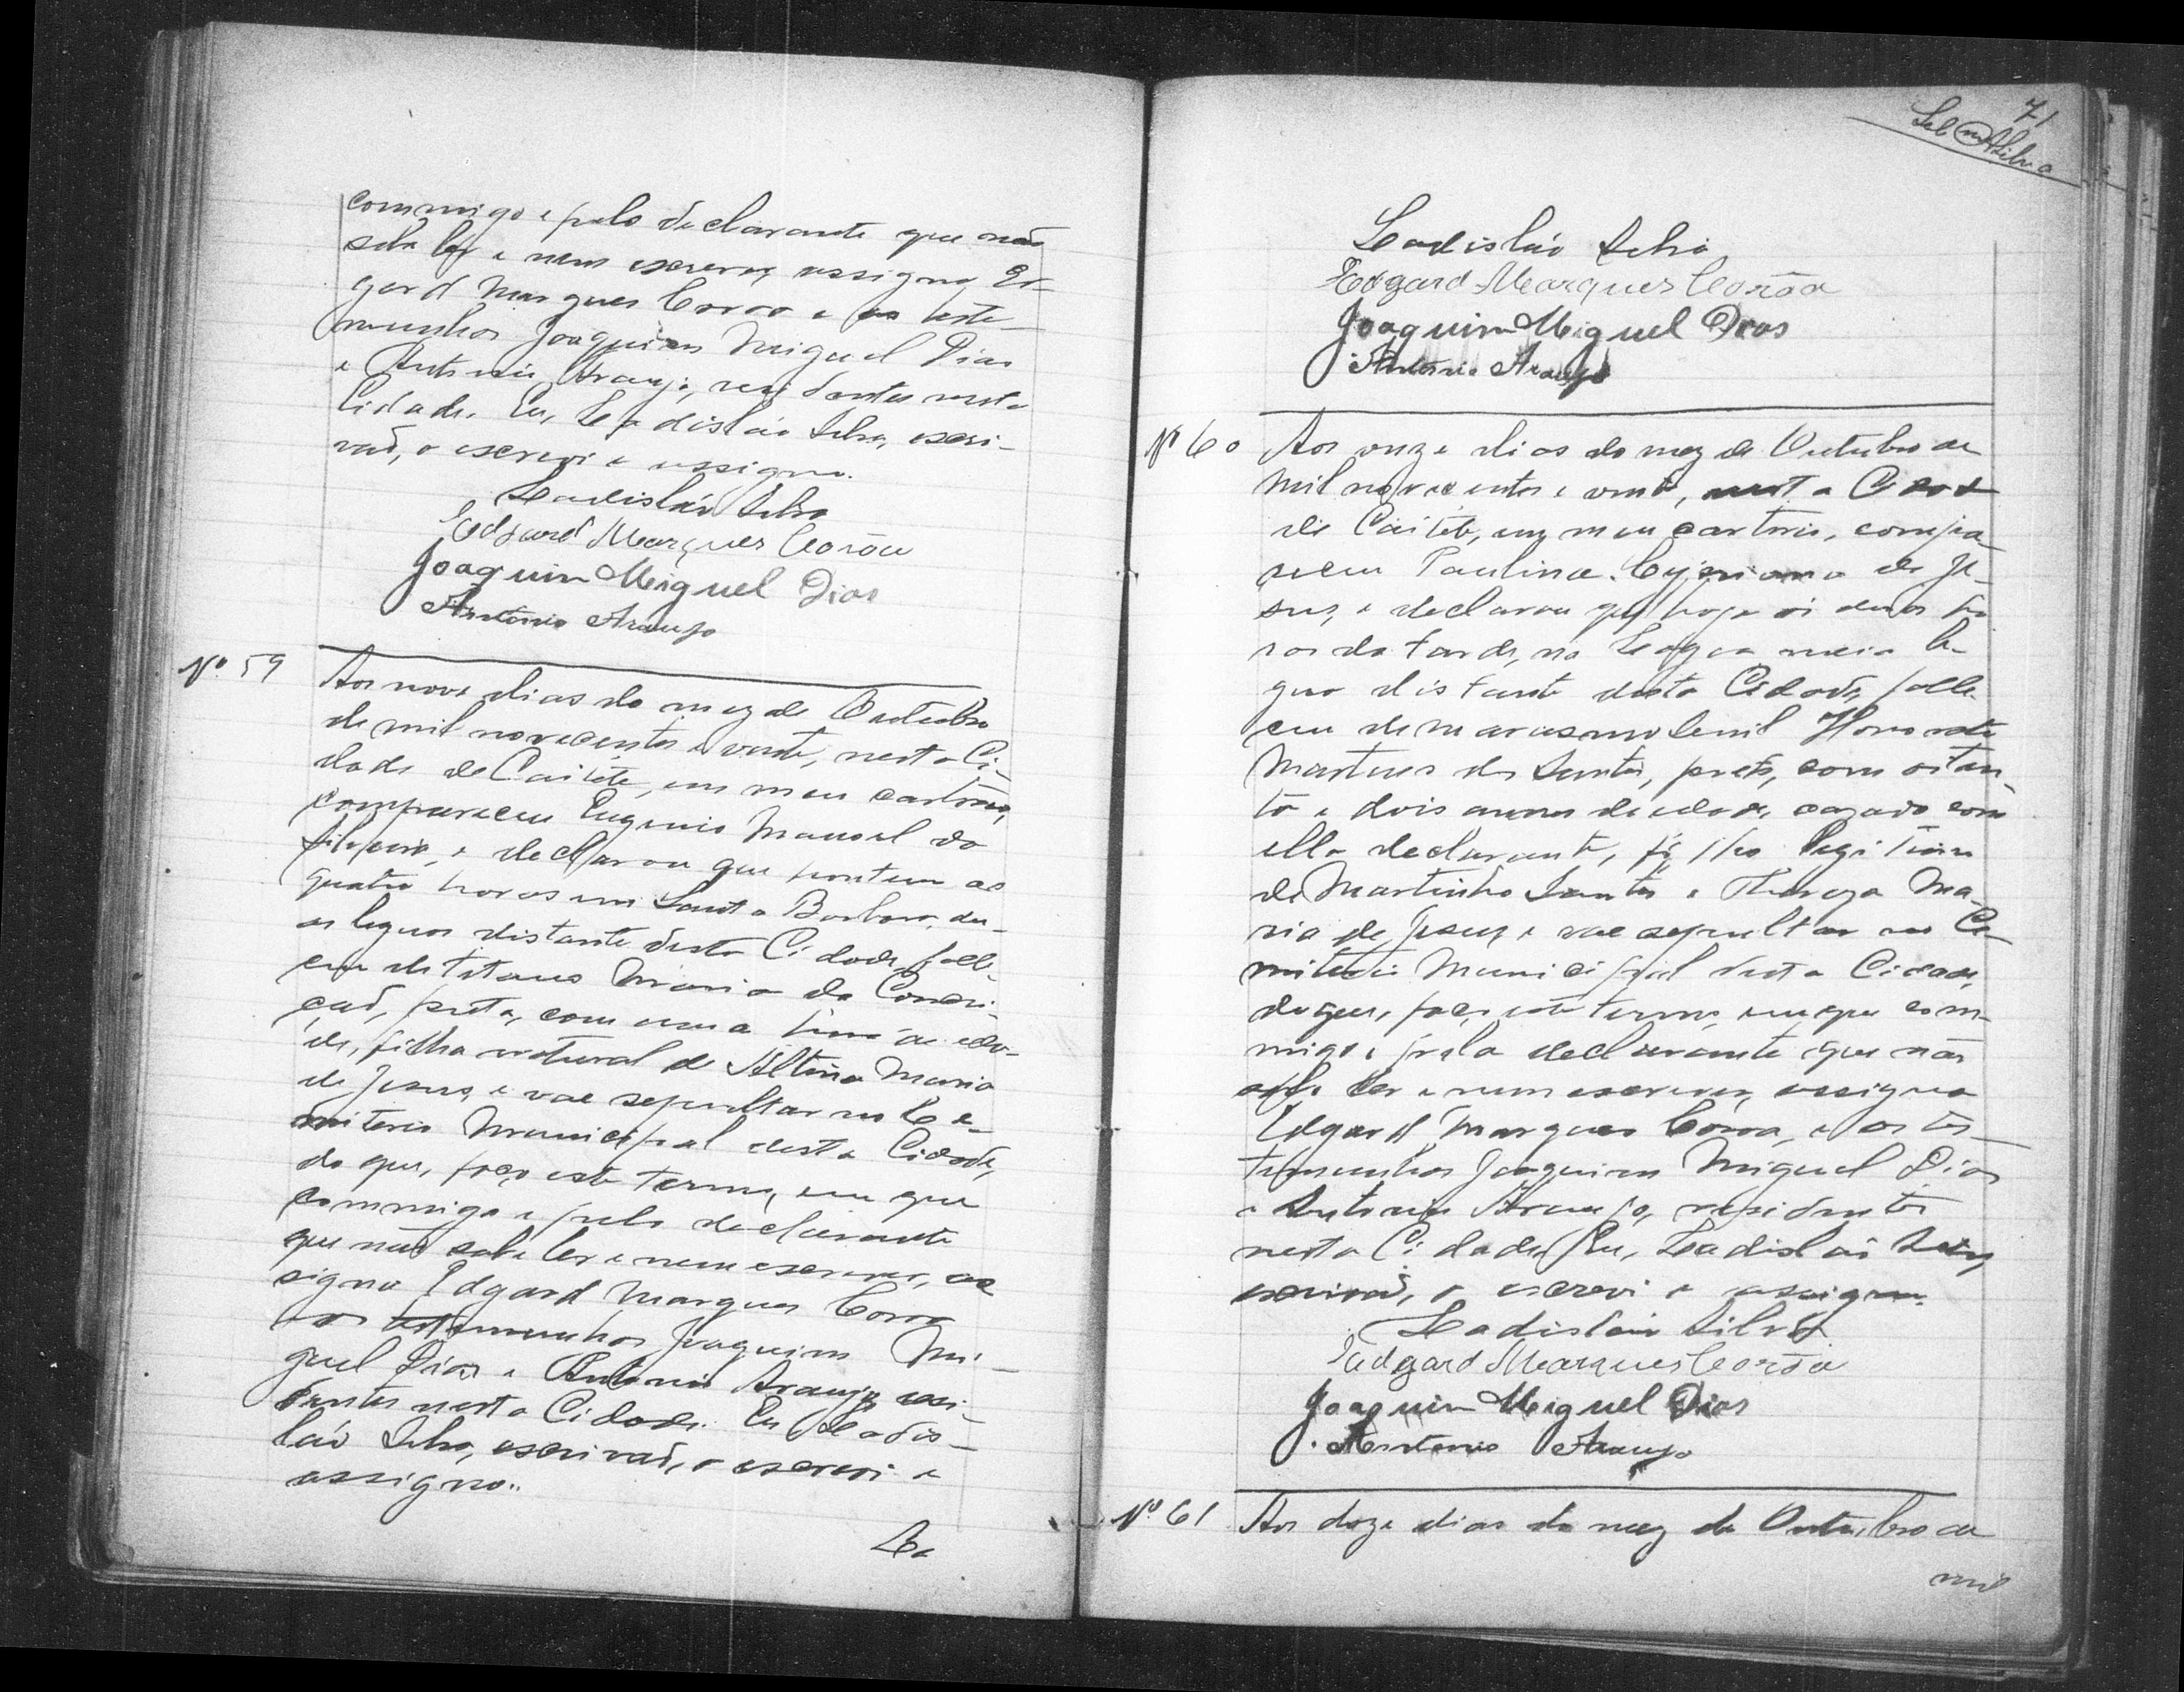 commigo e pelo declarante que não
sabe ler e nem escrever, assigna Ed-
gard Marques Coroa e as teste-
munhas Joaquim Miguel Dias
e Antonio Araujo, residentes nesta
Cidade. Eu, Ladisláo Silva, escri-
vaõ, o escrevi e assigno.
Ladisláo Silva
Edgard Marques Corôa
Joaquim Miguel Dias
Antonio Araujo
Nº 59 Aos nove dias do mez de Outubro
de mil novecentos e vinte, nesta Ci-
dade de Caiteté, em meu cartorio,
compareceu Eugenio Manoel da
Silveira, e declarou que hontem as
quatro horas em Santa Barbara, du-
as leguas distante desta Cidade, falle-
ceu de tetano Maria da Concei-
çaõ, preta, com uma hora de ida-
de, filha natural de Altina Maria
de Jesus, e vae sepultar no Ce-
miterio Municipal desta Cidade,
do que, faço este termo, em que
commigo e pelo declarante
que não sabe ler e nem escrever, as
signa Edgard Marques Coroa
e as testemunhas Joaquim Mi-
guel Dias e Antonio Araujo, resi-
dentes nesta Cidade. Eu Ladis-
láo Silva, escrivaõ, o escrevi e
assigno.
La
71
Ladisláo Silva
Edgard Marques Corôa
Joaquim Miguel Dias
Antonio Araujo
Nº 60 Aos onze dias do mez de Outubro de
mil novecentos e vinte, nesta Cidade
de Caiteté, em meu cartorio, compa-
receu Paulina Cypriana de Je-
sus, e declarou que hoje ás duas ho
ras da tarde, na Lagoa meia le-
gua distante desta Cidade, falle-
ceu de marasmo senil Honorato
Martins dos Santos, preto, com oiten-
ta e dois annos de idade, cazado com
ella declarante, filho legitimo
de Martinho Santos e Thereza Ma-
ria de Jesus, e vae sepultar no Ce-
miterio Municipal desta Cidade,
do que, faço este termo, em que com-
migo e pela declarante que não
sabe ler e nem escrever, assigna
Edgard Marques Corôa, e as tes-
temunhas Joaquim Miguel Dias
e Antonio Araujo, residentes
nesta Cidade. Eu, Ladisláo Silva,
escrivaõ, o escrevi e assigno.
Ladisláo Silva
Edgard Marques Corôa
Joaquim Miguel Dias
Antonio Araujo
Nº 61 Aos doze dias do mez de Outubro de
mil